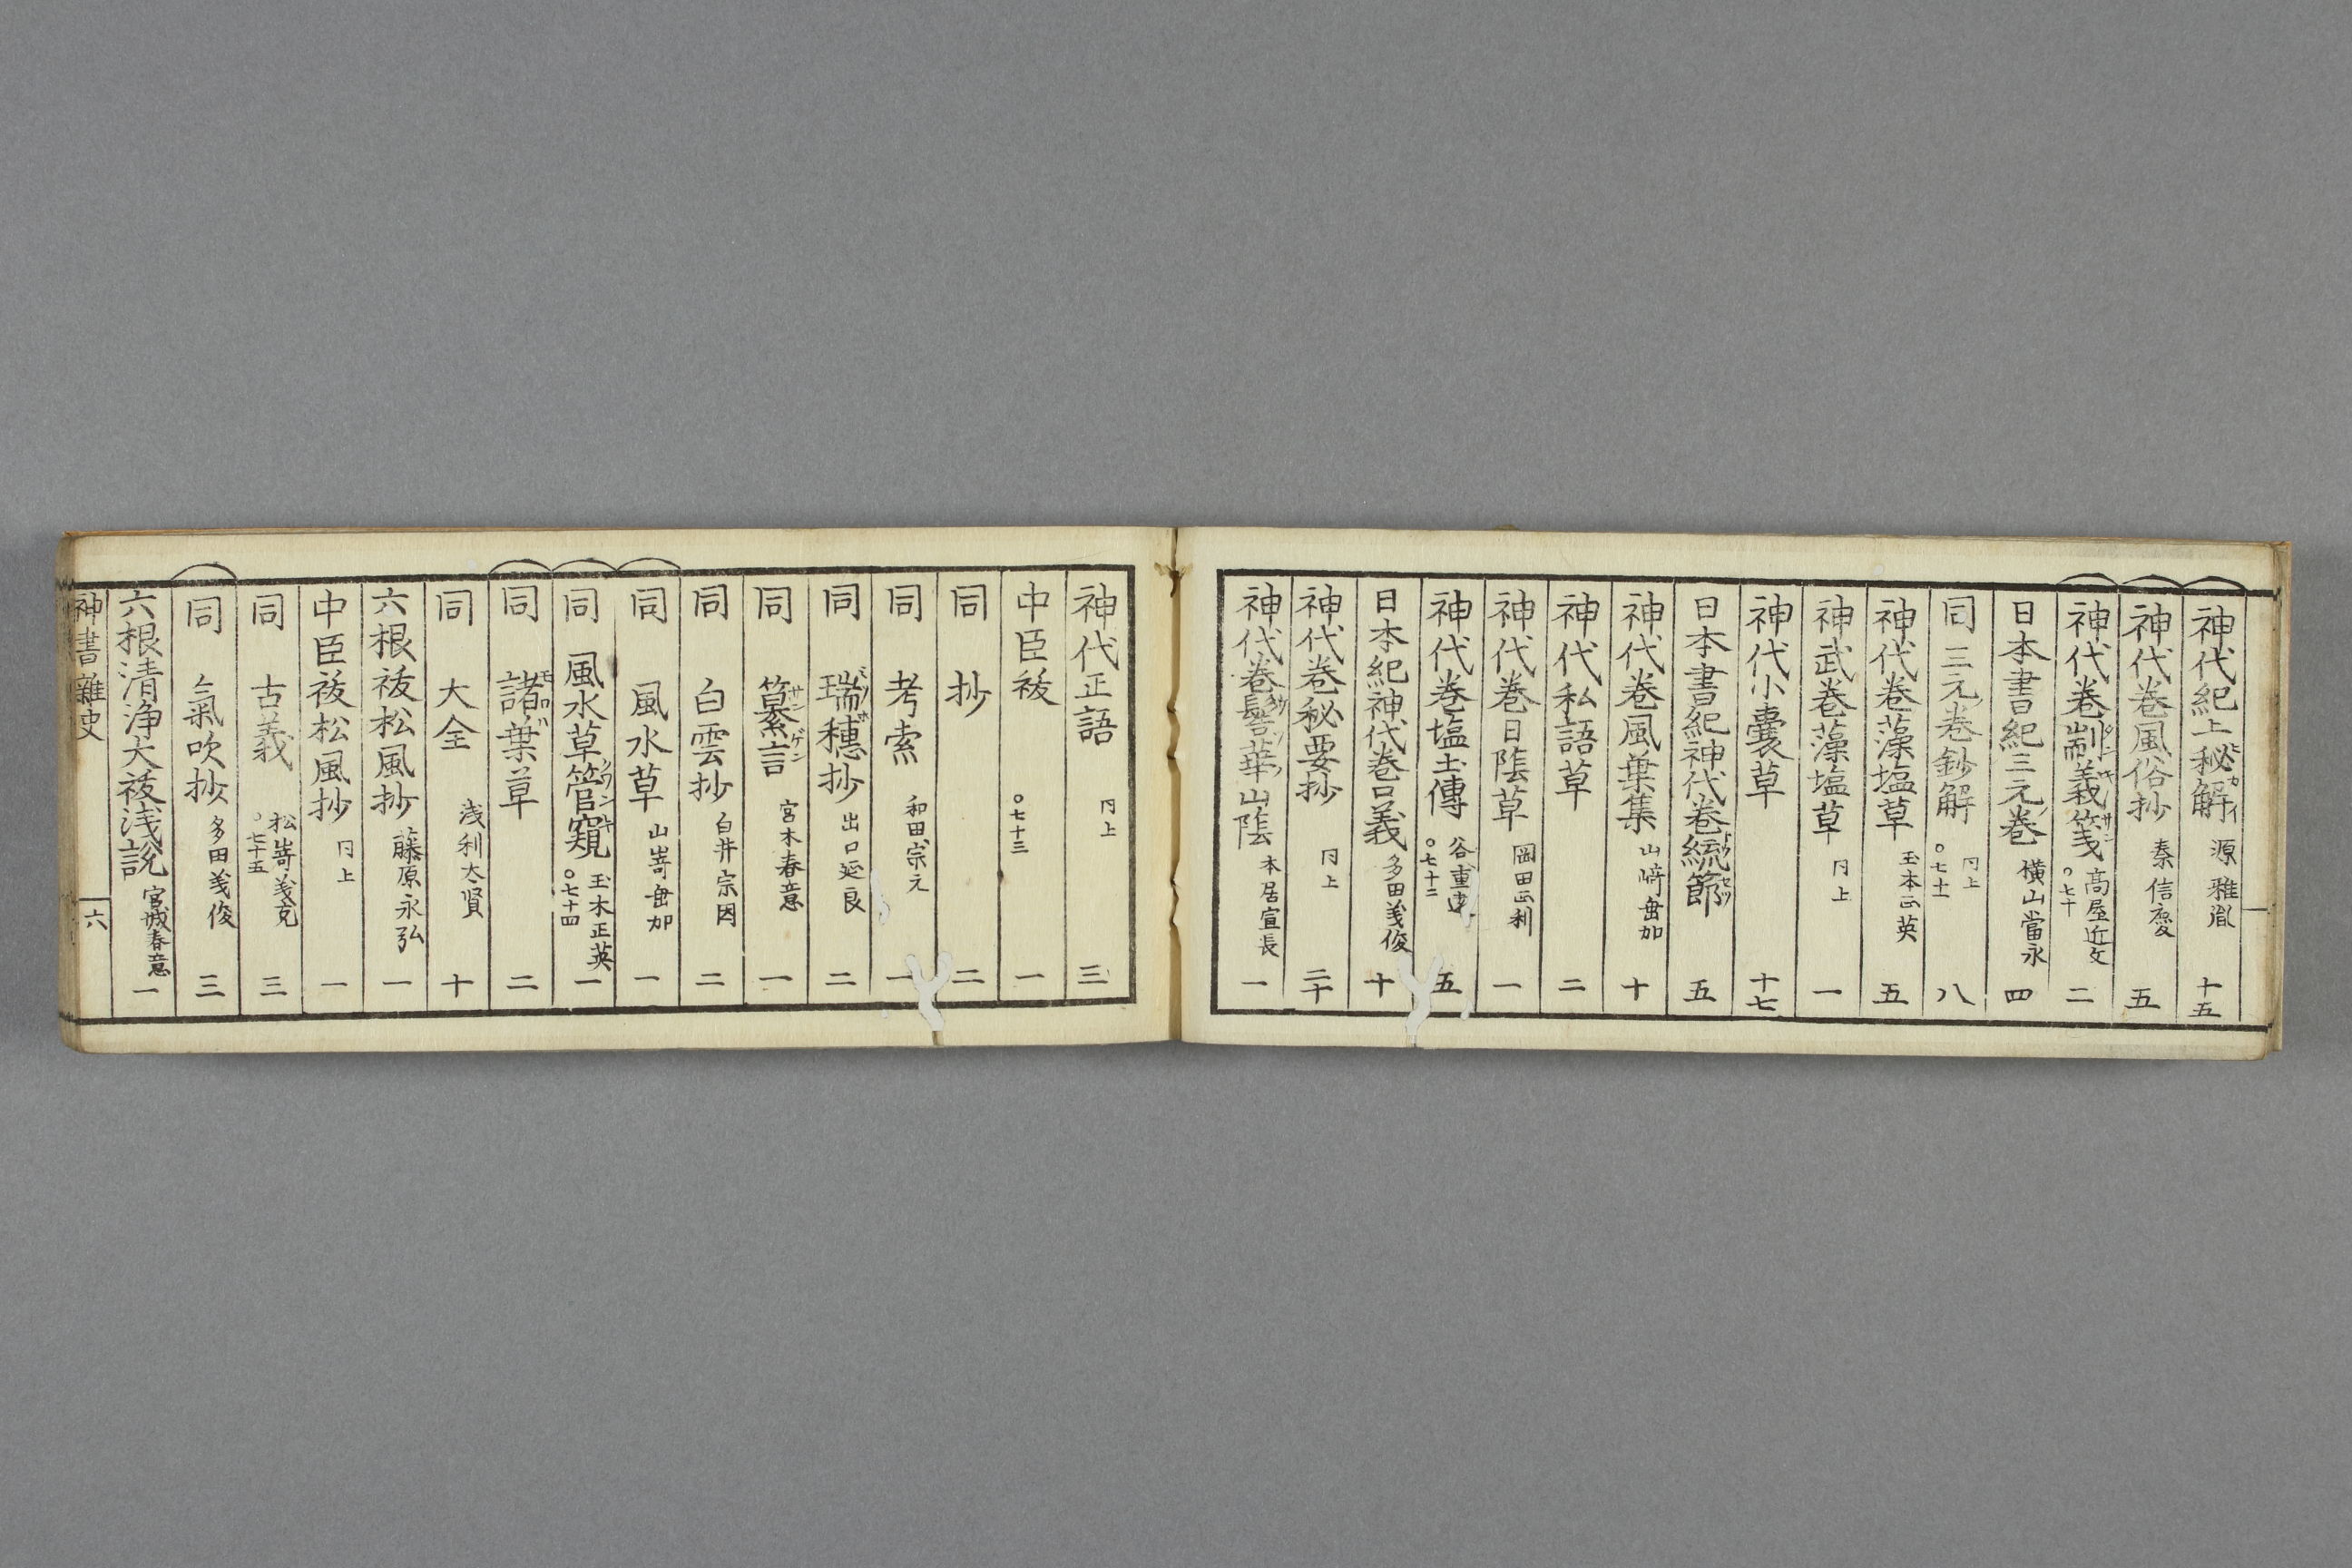 神代紀上秘解 源雅胤 十五
神代巻風俗抄 秦信慶 五
神代巻耑義箋 高屋近文 ○七十 二
日本書紀三元巻 横山當永 四
同三元巻鈔解 同上 ○七十一 八
神代巻藻塩草 玉本正英 五
神武巻藻塩草 同上 一
神代小嚢草 十七
日本書紀神代巻統節 五
神代巻風葉集 山﨑垂加 十
神代私語草 二
神代巻日蔭草 岡田正利 一
神代巻塩土傳 谷重遠 ○七十二 五
日本紀神代巻口義 多田義俊 十
神代巻秘要抄 同上 二十
神代巻髻華山蔭 本居宣長 一
神代正語 同上 三
中臣祓 ○七十三 一
同 抄 二
同 考索 和田宗元 一
同 瑞穗抄 出口延良 二
同 纂言 宮木春意 一
同 白雲抄 白井宗因 二
同 風水草 山嵜垂加 一
同 風水草管窺 玉木正英 ○七十四 一
同 諸葉草 二
同 大全 浅利太賢 十
六根祓松風抄 藤原永弘 一
中臣祓松風抄 同上 一
同 古義 松嵜義克 ○七十五 三
同 氣吹抄 多田義俊 三
六根清浄大祓浅説 宮城春意 一
神書 雜史 六